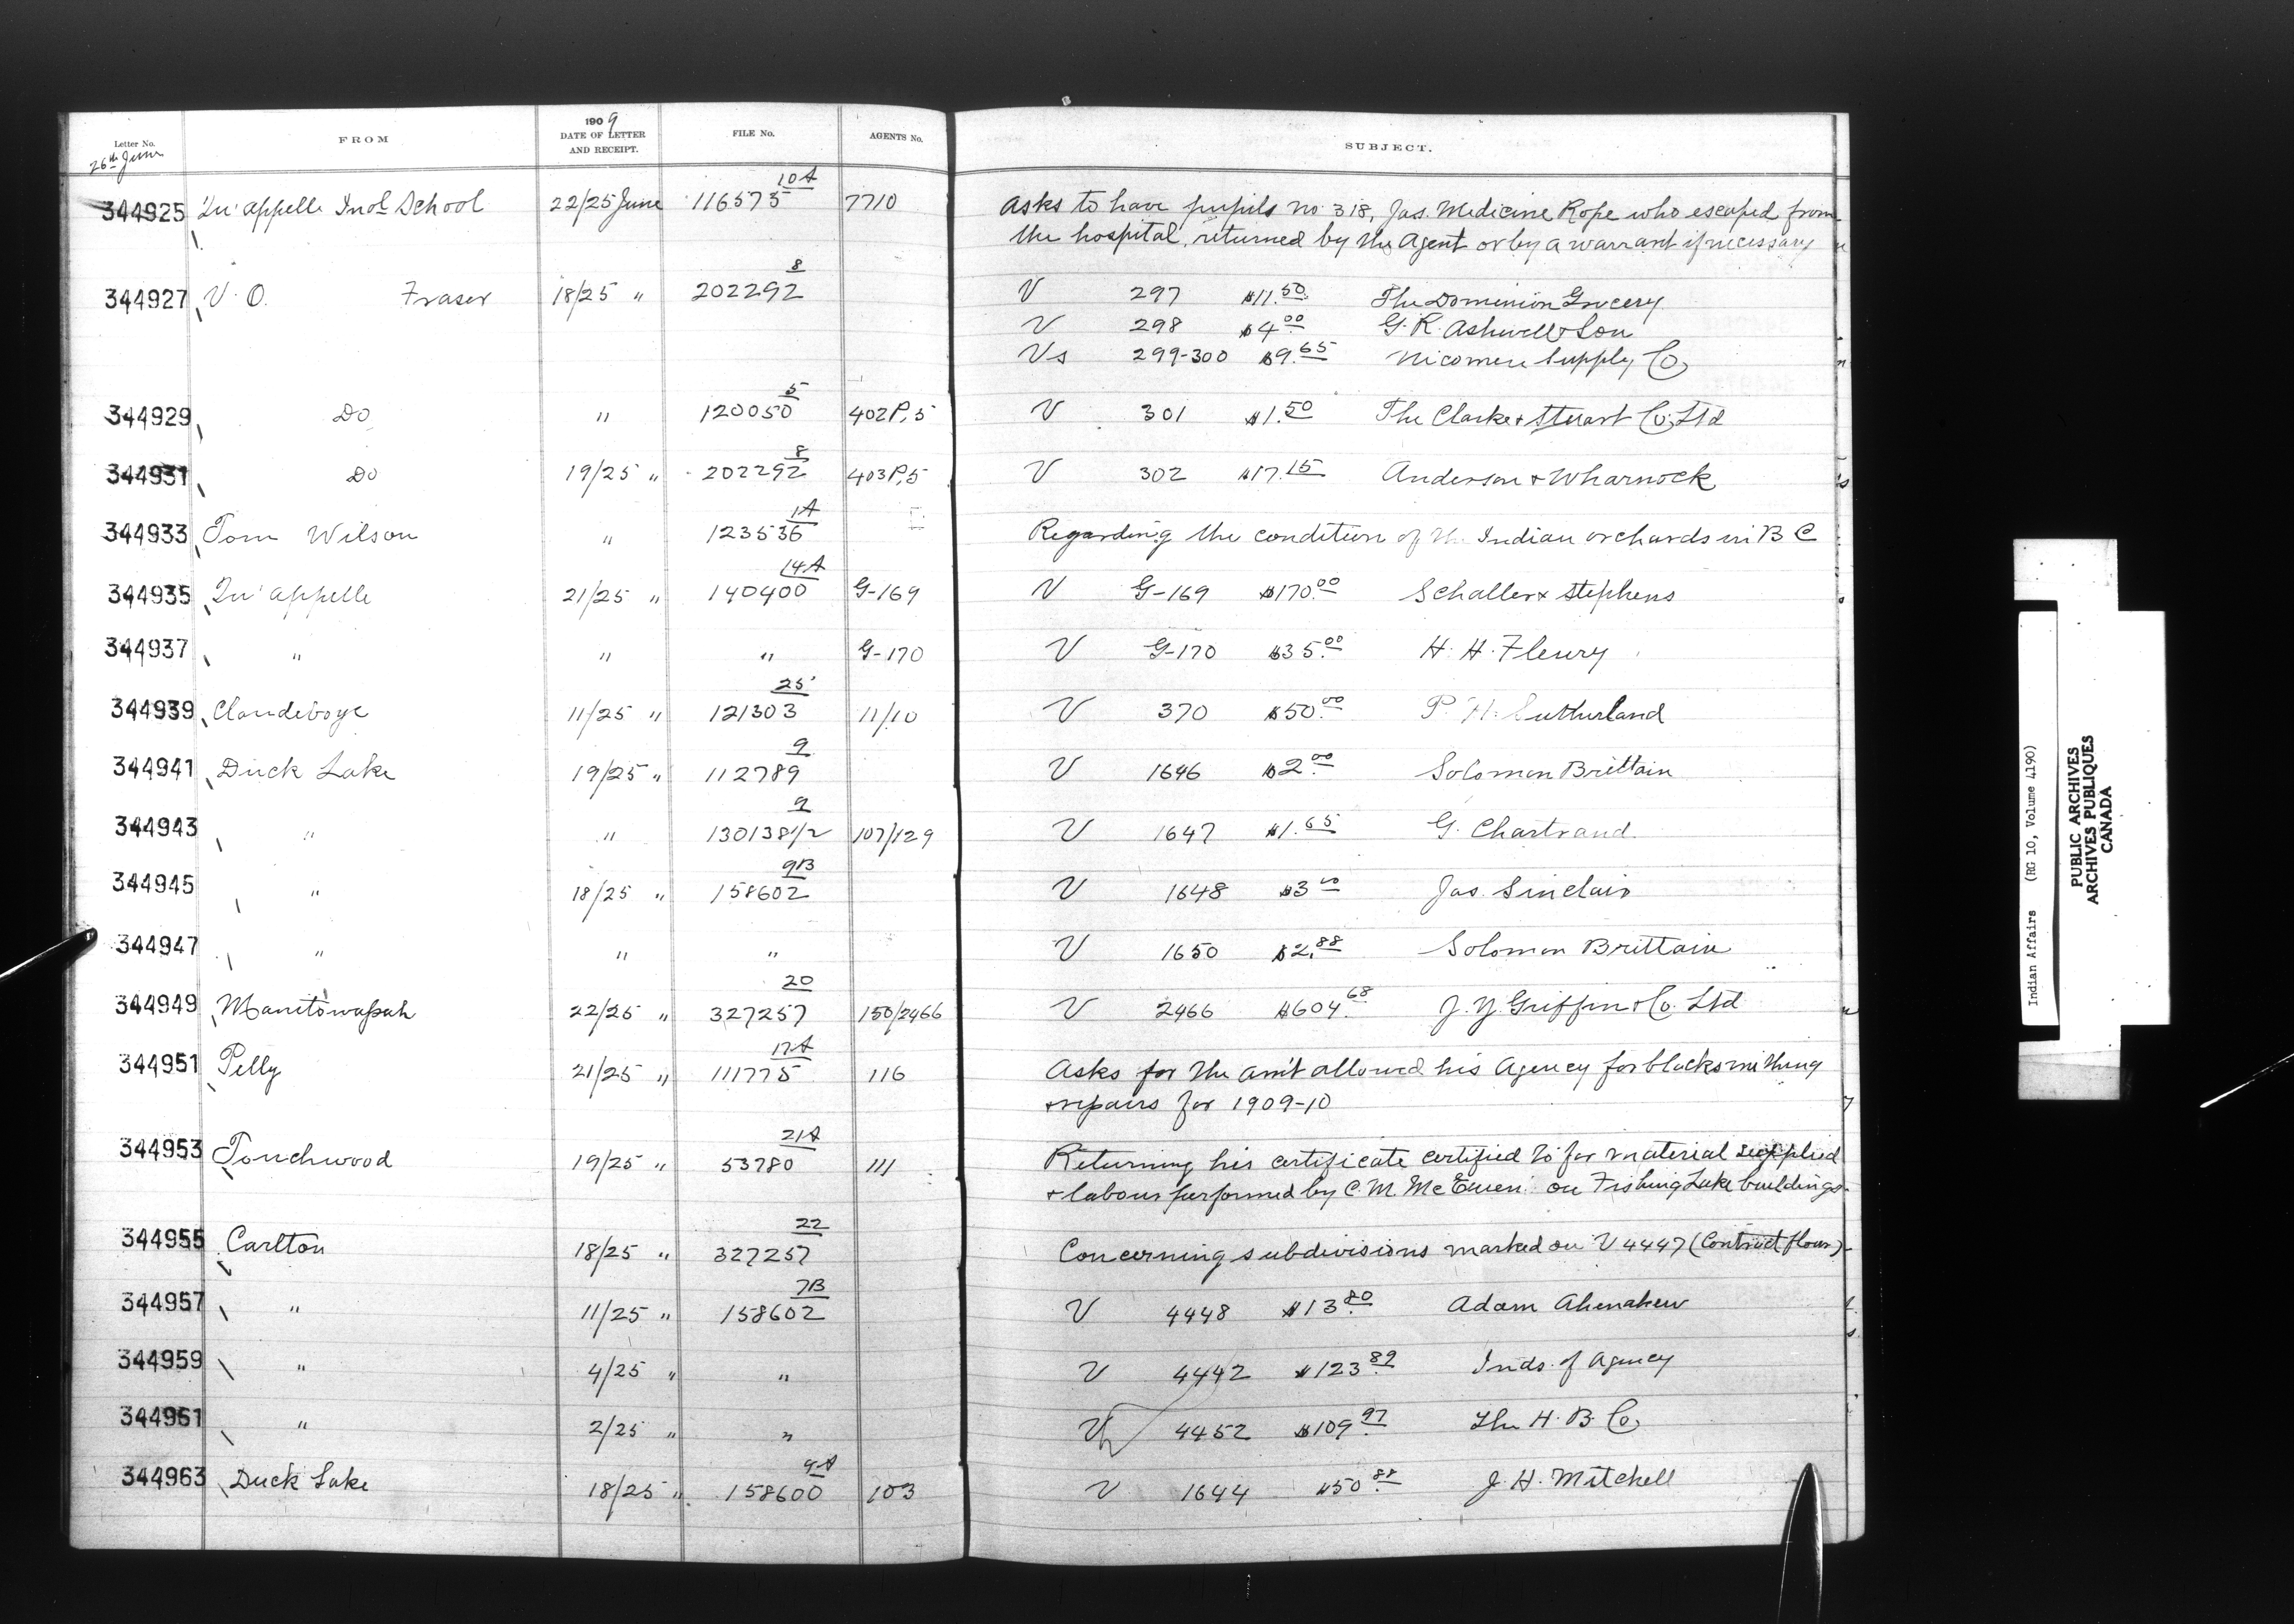 Letter No. FROM 1909 DATE OF LETTER AND RECEIPT. FILE No. AGENTS No. SUBJECT.
26th June
344925 Qu'appelle Indl School 22/25 June 116575 10A 7710 Asks to have pupils no 318, Jas. Medicine Rope who escaped from
the hospital, returned by the Agent or by a warrant if necessary
344927 V. O. Fraser 18/25 " 202292 8 V 297 $11.50 The Dominion Grocery
V 298 $4.00 G. R. Ashwell & Son
Vs 299-300 $9.65 Nicomen Supply Co
344929 Do " 120050 5 402P,5 V 301 $1.50 The Clarke & Stuart Co. Ltd
344931 Do 19/25 " 202292 8 403P,5 V 302 $17.15 Anderson & Wharnock
344933 Tom Wilson " 123536 1A Regarding the condition of the Indian orchards in B C
344935 Qu'appelle 21/25 " 140400 14A G-169 V G-169 $170.00 Schaller & Stephens
344937 " " " G-170 V G-170 $35.00 H. H. Fleury
344939 Clandeboye 11/25 " 121303 25 11/10 V 370 $50.00 P. H. Sutherland
344941 Duck Lake 19/25 " 112789 9 V 1646 $2.00 Solomon Brittain
344943 " " 130138 1/2 9 107/129 V 1647 $1.65 G. Chartrand
344945 " 18/25 " 158602 9B V 1648 $3.00 Jas. Sinclair
344947 " " " V 1650 $2.88 Solomon Brittain
344949 Manitowapah 22/25 " 327257 20 150/2466 V 2466 $604.68 J. Y. Griffin & Co. Ltd
344951 Pelly 21/25 " 111775 17A 116 Asks for the am't allowed his Agency for blacksmithing
& repairs for 1909-10
344953 Touchwood 19/25 " 53780 21A 111 Returning his certificate certified to for material supplied
& labour performed by C. M. McEwen on Fishing Lake buildings
344955 Carlton 18/25 " 327257 22 Concerning subdivisions marked on V 4447 (Contract flour)
344957 " 11/25 " 158602 7B V 4448 $13.80 Adam Ahenakew
344959 " 4/25 " " V 4442 $123.89 Inds. of Agency
344961 " 2/25 " " V 4452 $109.97 The H. B. Co
344963 Duck Lake 18/25 " 158600 9A 103 V 1644 $50.88 J. H. Mitchell
Indian Affairs (RG 10, Volume 4190)
PUBLIC ARCHIVES
ARCHIVES PUBLIQUES
CANADA